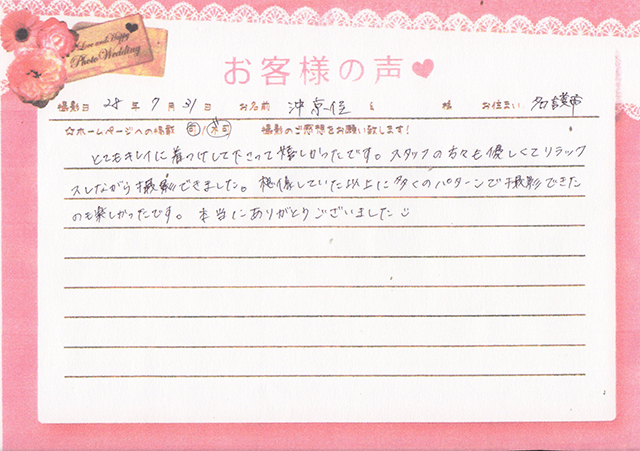 Love and Happy
Photo Wedding
お客様の声
撮影日 28年7月31日 お名前 沖 様 お住まい 名護市
☆ホームページへの掲載 可/不可 撮影のご感想をお願い致します!
とてもキレイに着つけして下さって嬉しかったです。スタッフの方々も優しくてリラック
スしながら撮影できました。想像していた以上に多くのパターンで撮影できた
のも楽しかったです。本当にありがとうございました